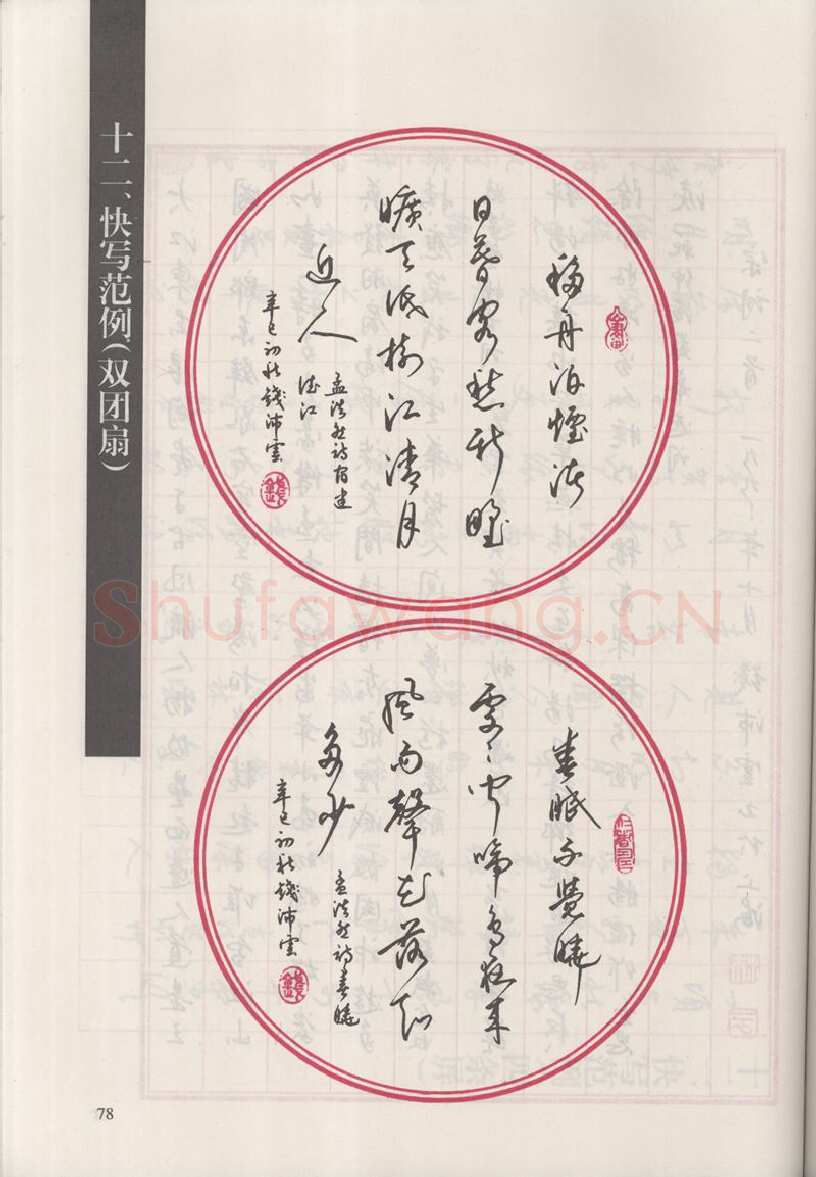 十二、快写范例(双团扇)
移舟泊烟渚
日暮客愁新野
曠天低樹江清月
近人
孟浩然詩宿建
德江
辛巳初秋錢沛雲
春眠不覺曉
處〻聞啼鳥夜来
風雨聲花落知
多少
孟浩然詩春曉
辛巳初秋錢沛雲
Shufawang.CN
78